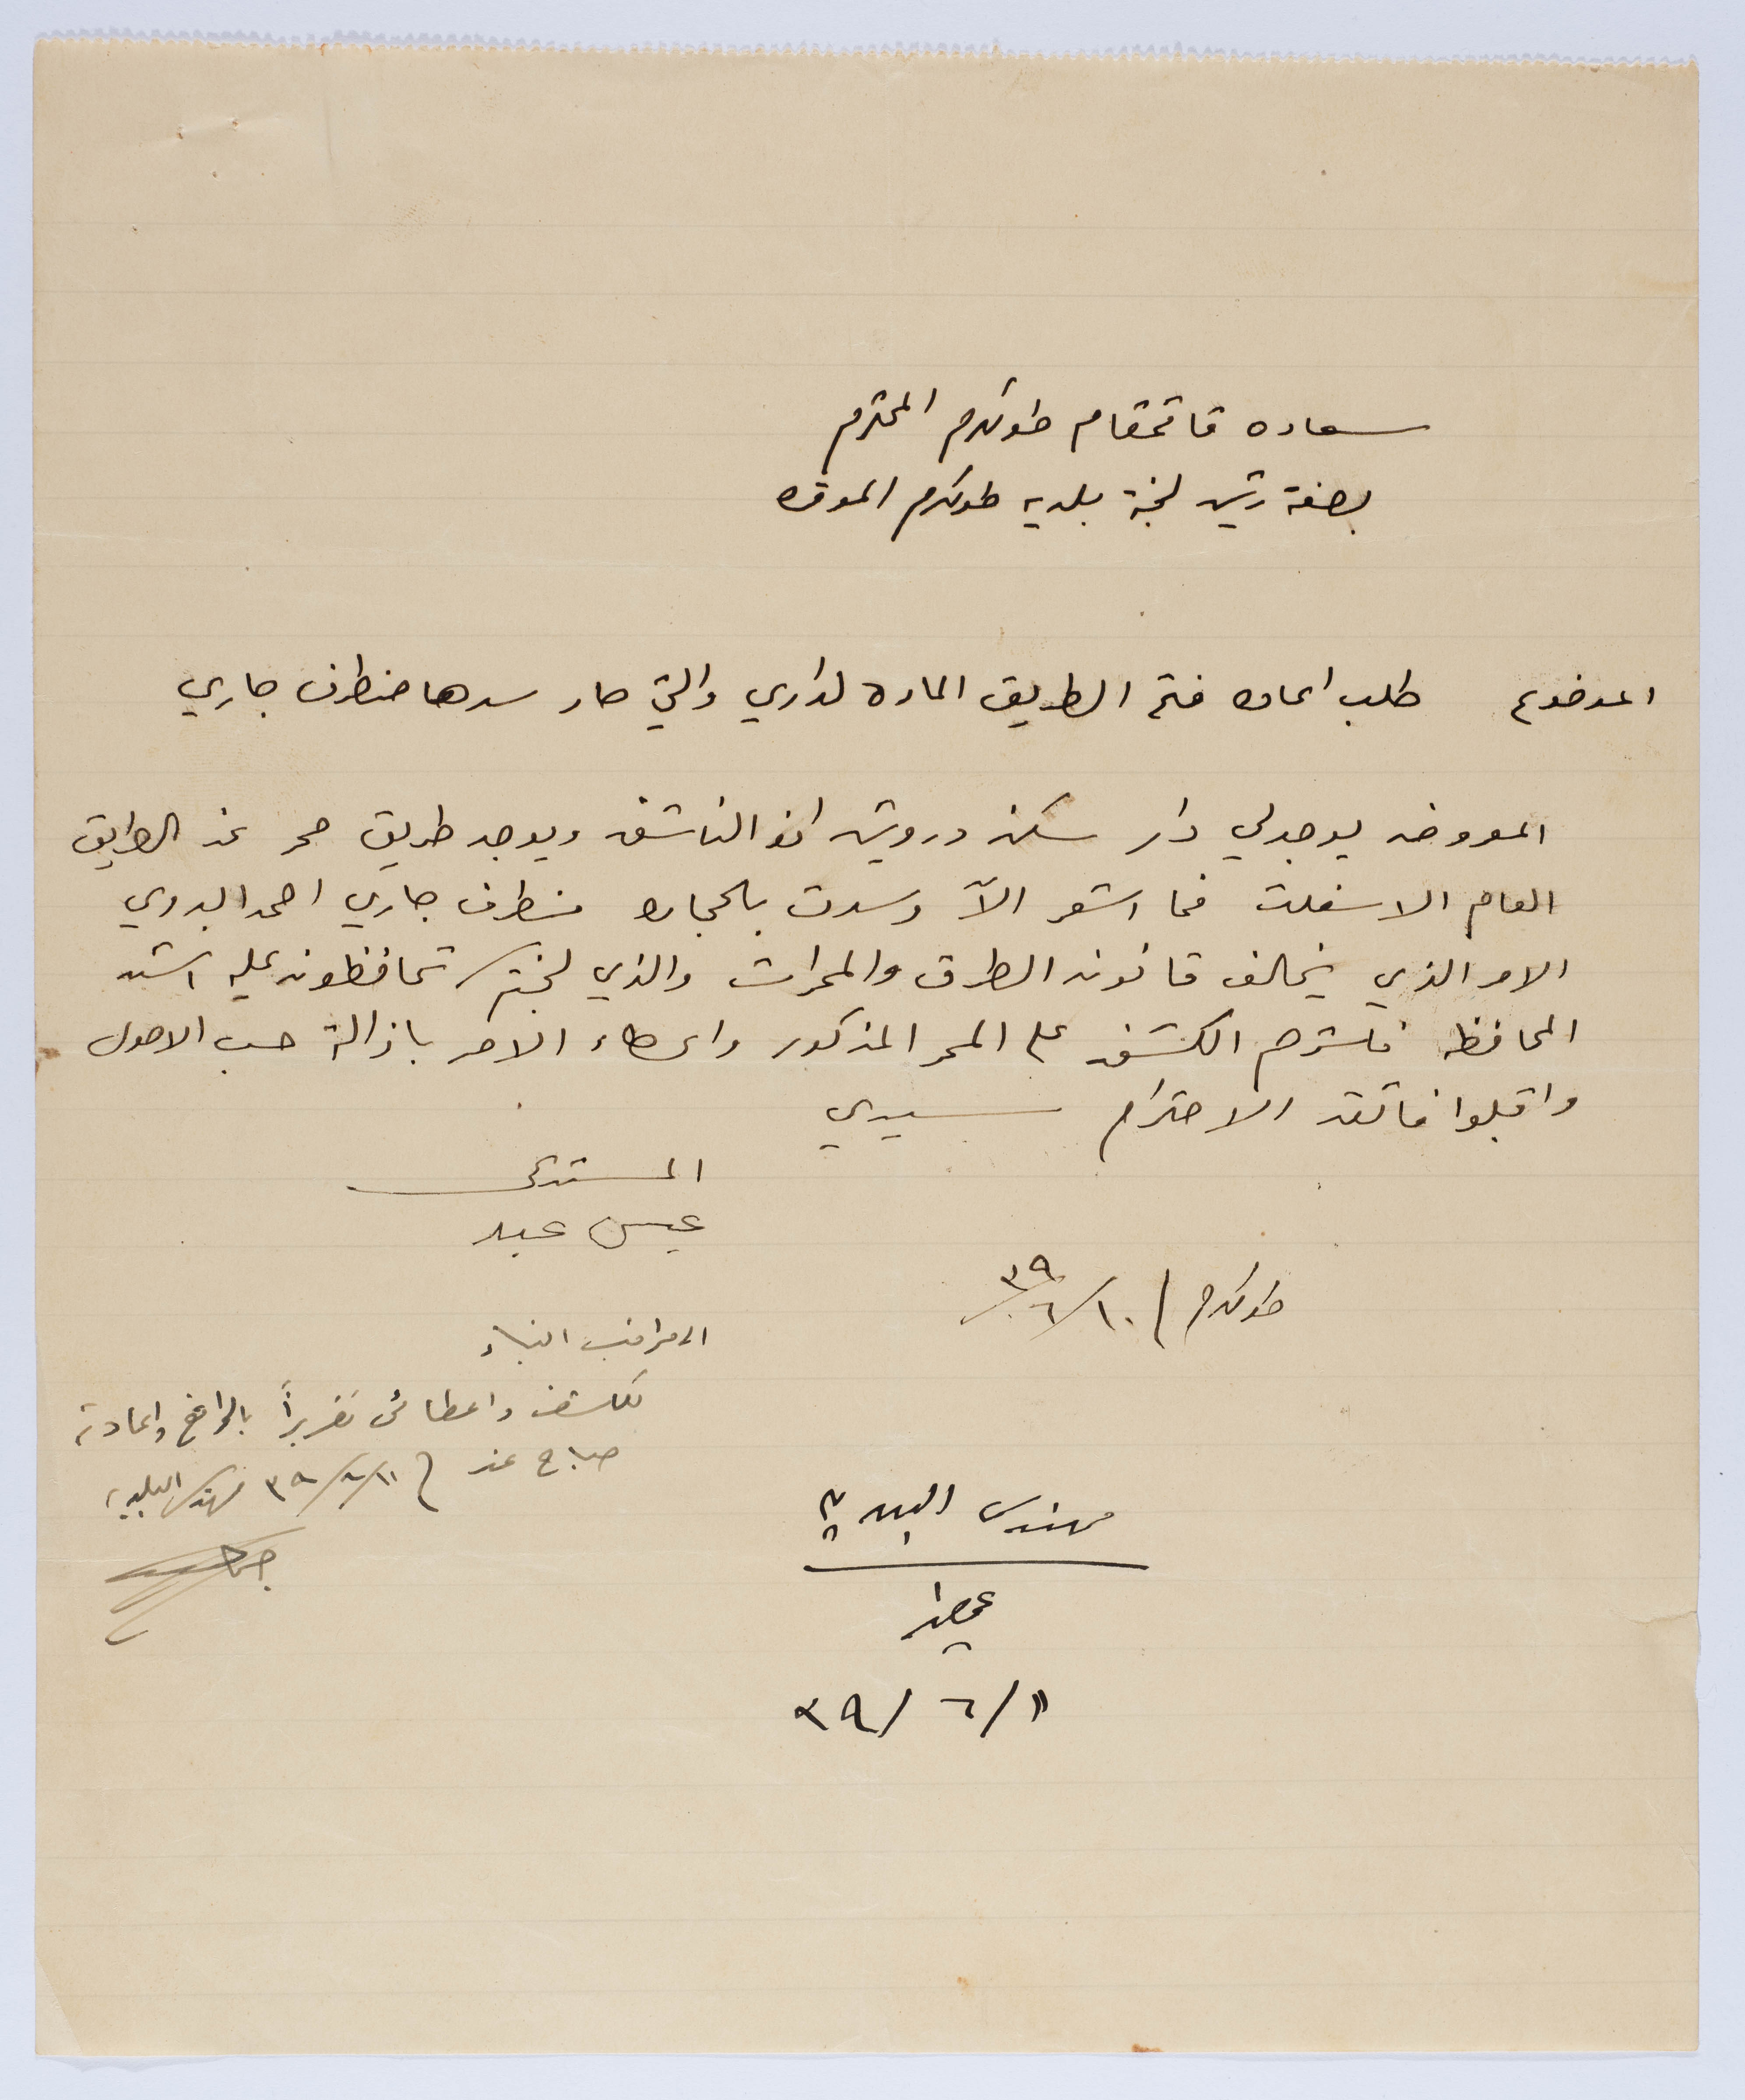 سعاده قائمقام طولكرم المحترم
بصفة رئيس لجنة بلديه طولكرم الموقره
الموضوع طلب اعاده فتح الطريق الماره لداري والتي صار سدها منطرف جاري
المعروض يوجد لي دار سكن ويوجد طريق ممر عن الطريق
العام الاسفلت فما اشعر الآ وسدت بالحجاره منطرف جاري احمد البدوي
الامر الذي يخالف قانون الطرق والممرات والذي لجنتكم تحافظون عليه اشد
المحافظه فلسترحم الكشف على الممر المذكور واعطاء الامر بازالة حسب الاصول
واقبلوا فائق الاحترام سيدي
المستدعي
عيسى عبد
طولكرم ١٠/٦/٣٩
الى مراقب البناء
للكشف واعطائي تقريراً بالواقع واعادته
صباح غد ١١/٦/٣٩ مهندس البلدية
مهندس البلدية
١١/٦/٣٩